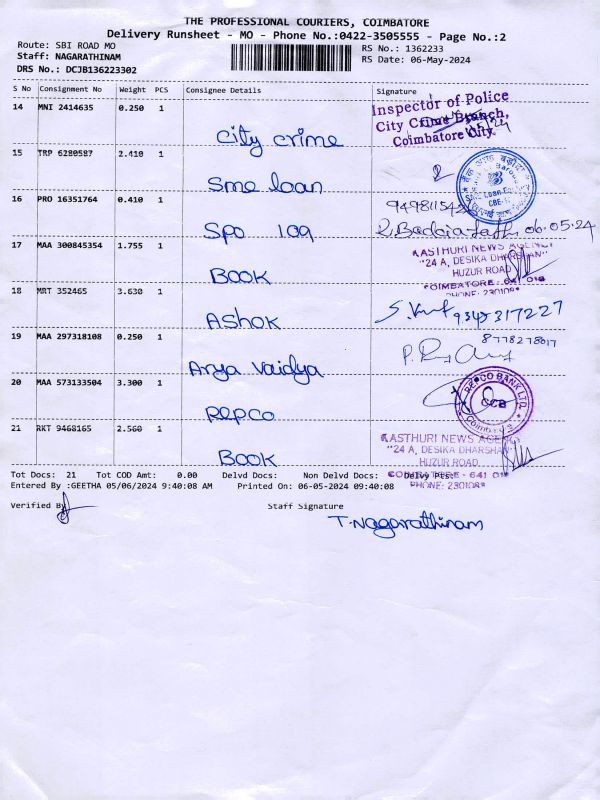 THE PROFESSIONAL COURIERS, COIMBATORE
Delivery Runsheet - MO - Phone No.:0422-3505555 - Page No.:2
Route: SBI ROAD MO
RS No.: 1362233
Staff: NAGARATHINAM
RS Date: 06-May-2024
DRS No.: DCJB136223302
S No Consignment No Weight PCS Consignee Details Signature
14 MNI 2414635 0.250 1
Inspector of Police
City Crime Branch,
Coimbatore City.
City crime
15 TRP 6280587 2.410 1
Sme loan
16 PRO 16351764 0.410 1
06.05.24
Spo 109
17 MAA 300845354 1.755 1
KASTHURI NEWS AGENCY
"24 A, DESIKA DHARSHAN"
HUZUR ROAD
COIMBATORE - 641 018
PHONE: 230109
BOOK
18 MRT 352465 3.630 1
9345317227
ASHOK
19 MAA 297318108 0.250 1
8778278017
Arya Vaidya
20 MAA 573133504 3.300 1
REPCO BANK LTD.
CCB
Repco
21 RKT 9468165 2.560 1
KASTHURI NEWS AGENCY
"24 A, DESIKA DHARSHAN"
HUZUR ROAD
COIMBATORE - 641 018
PHONE: 230109
BOOK
Tot Docs: 21 Tot COD Amt: 0.00 Delvd Docs: Non Delvd Docs: Delvy Pts:
Entered By :GEETHA 05/06/2024 9:40:08 AM Printed On: 06-05-2024 09:40:08
Verified By
Staff Signature
T. Nagarathinam